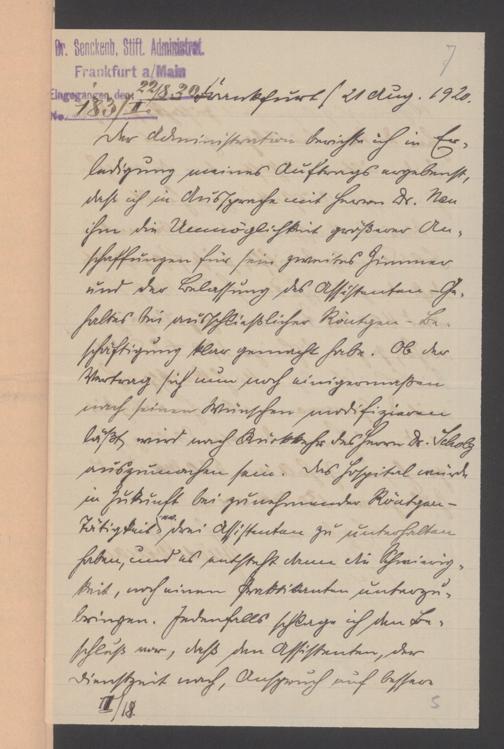 Dr. Senckenb. Stift. Administrat.
Frankfurt a/Main
Eingegangen, den: 22/8.20.
No. 183/II.
7
Frankfurt, 21 Aug. 1920.
Der Administration berichte ich in Er-
ledigung meines Auftrags ergebenst,
daß ich in Aussprache mit Herrn Dr. Neu
ihm die Unmöglichkeit größerer An-
schaffungen für sein zweites Zimmer
und der Belassung des Assistenten-Ge-
haltes bei ausschließlicher Röntgen-Be-
schäftigung klar gemacht habe. Ob der
Vertrag sich nun noch einigermaßen
nach seinen Wünschen modifizieren
läßt, wird nach Rückkehr des Herrn Dr. Scholz
auszumachen sein. Das Hospital würde
in Zukunft bei zunehmender Röntgen-
Tätigkeit drei Assistenten zu unterhalten
haben, und es entsteht dann die Schwierig-
keit, noch einen Praktikanten unterzu-
bringen. Jedenfalls schlage ich den Be-
schluß vor, daß den Assistenten, der
Dienstzeit nach, Anspruch auf bessere
II/18
5